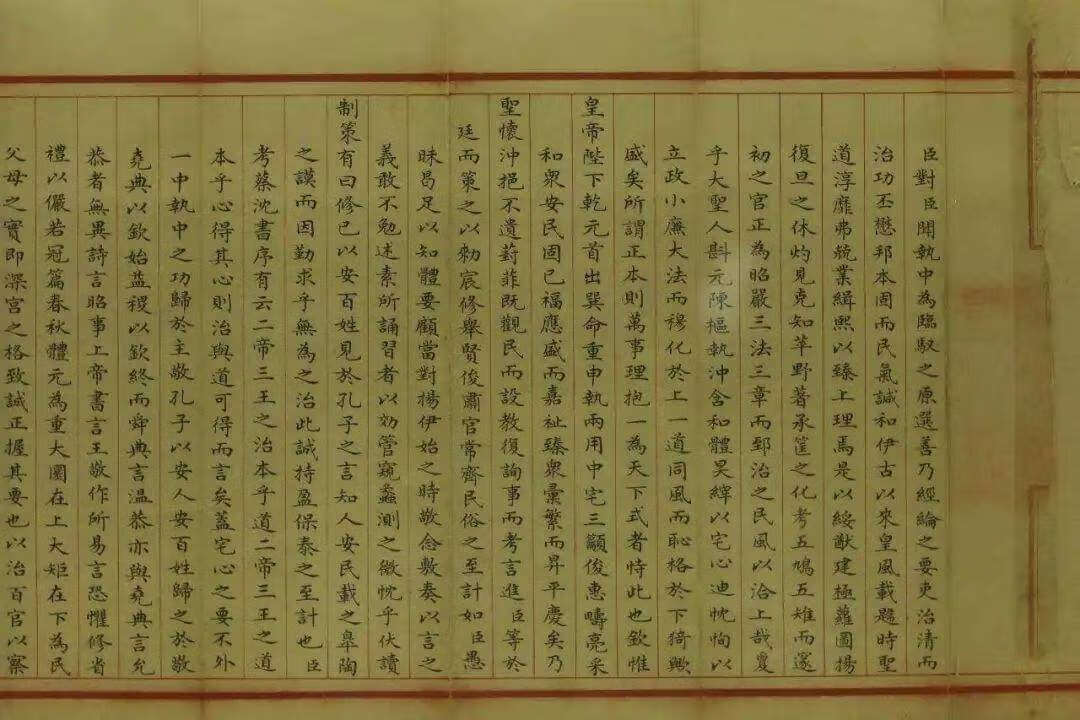 臣對臣聞執中為臨馭之原選善乃經綸之要吏治清而
治功丕懋邦本固而民氣諴和伊古以來皇風載颺時聖
道淳靡弗兢業緝熙以臻上理焉是以綏猷建極蘿圖揚
復旦之休灼見克知莘野著承筐之化考五鳩五雉而邃
初之官正為昭嚴三法三章而郅治之民風以洽上哉敻
乎大聖人斟元陳樞執沖含和體昊縡以宅心迪忱恂以
立政小廉大法而穆化於上一道同風而恥格於下猗歟
盛矣所謂正本則萬事理抱一為天下式者恃此也欽惟
皇帝陛下乾元首出巽命重申執兩用中宅三籲俊惠疇亮采
和眾安民固已福應盛而嘉祉臻眾彙繁而昇平慶矣乃
聖懷沖挹不遺葑菲既觀民而設教復詢事而考言進臣等於
廷而策之以勑宸修舉賢俊肅官常齊民俗之至計如臣愚
昧曷足以知體要顧當對揚伊始之時敬念敷奏以言之
義敢不勉述素所誦習者以効管窺蠡測之微忱乎伏讀
制策有曰修己以安百姓見於孔子之言知人安民載之皋陶
之謨而因勤求乎無為之治此誠持盈保泰之至計也臣
考蔡沈書序有云二帝三王之治本乎道二帝三王之道
本乎心得其心則治與道可得而言矣蓋宅心之要不外
一中執中之功歸於主敬孔子以安人安百姓歸之於敬
堯典以欽始益稷以欽終而舜典言溫恭亦與堯典言允
恭者無異詩言昭事上帝書言王敬作所易言恐懼修省
禮以儼若冠篇春秋體元為重大圜在上大矩在下為民
父母之實即深宮之格致誠正握其要也以治百官以察